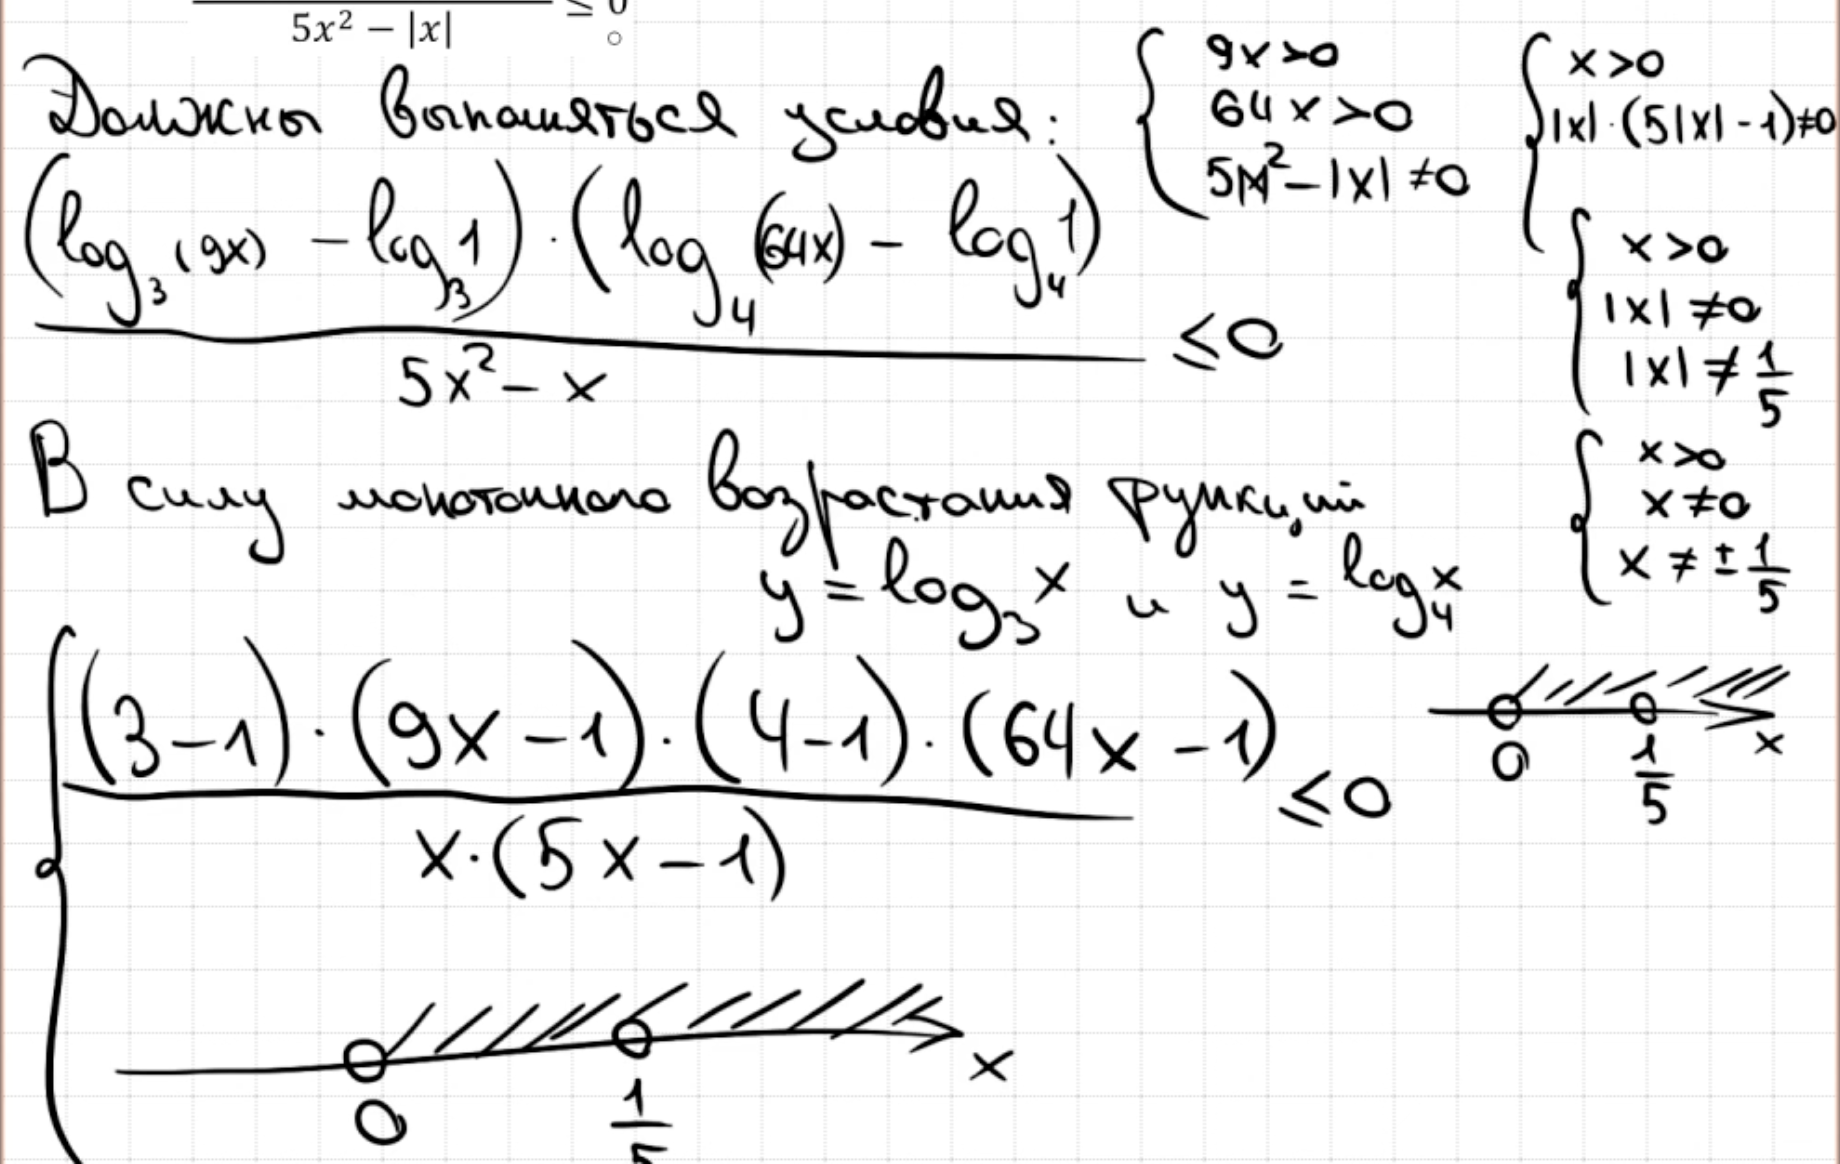 5x² − |x| ≤ 0
Должны выполняться условия:
{ 9x>0
64x>0
5|x|² − |x| ≠0
{ x>0
|x|·(5|x| − 1)≠0
{ x>0
|x| ≠0
|x| ≠ 1/5
{ x>0
x ≠0
x ≠ ± 1/5
(log₃(9x) − log₃1)·(log₄(64x) − log₄1)
5x² − x ≤0
В силу монотонного возрастания функций
y = log₃x и y = log₄x
{ (3−1)·(9x−1)·(4−1)·(64x−1)
x·(5x−1) ≤0
0 1/5 x
0 1/5 x